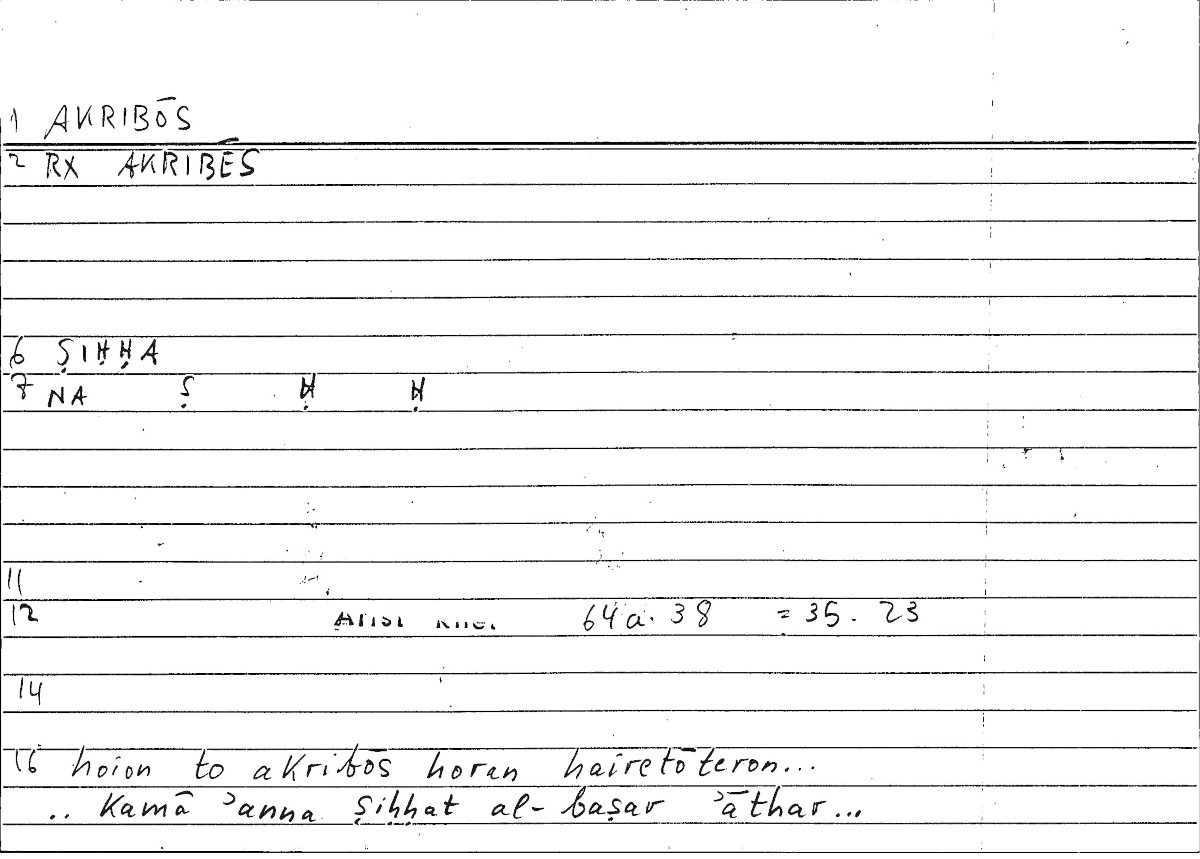 1 AKRIBŌS
2 RX AKRIBĒS
6 ṢIḤḤA
7 NA Ṣ Ḥ Ḥ
11
12 64a.38 = 35.23
14
16 hoion to akribōs horan hairetōteron...
.. Kamā ʾanna ṣiḥḥat al-baṣar ʾāthar...